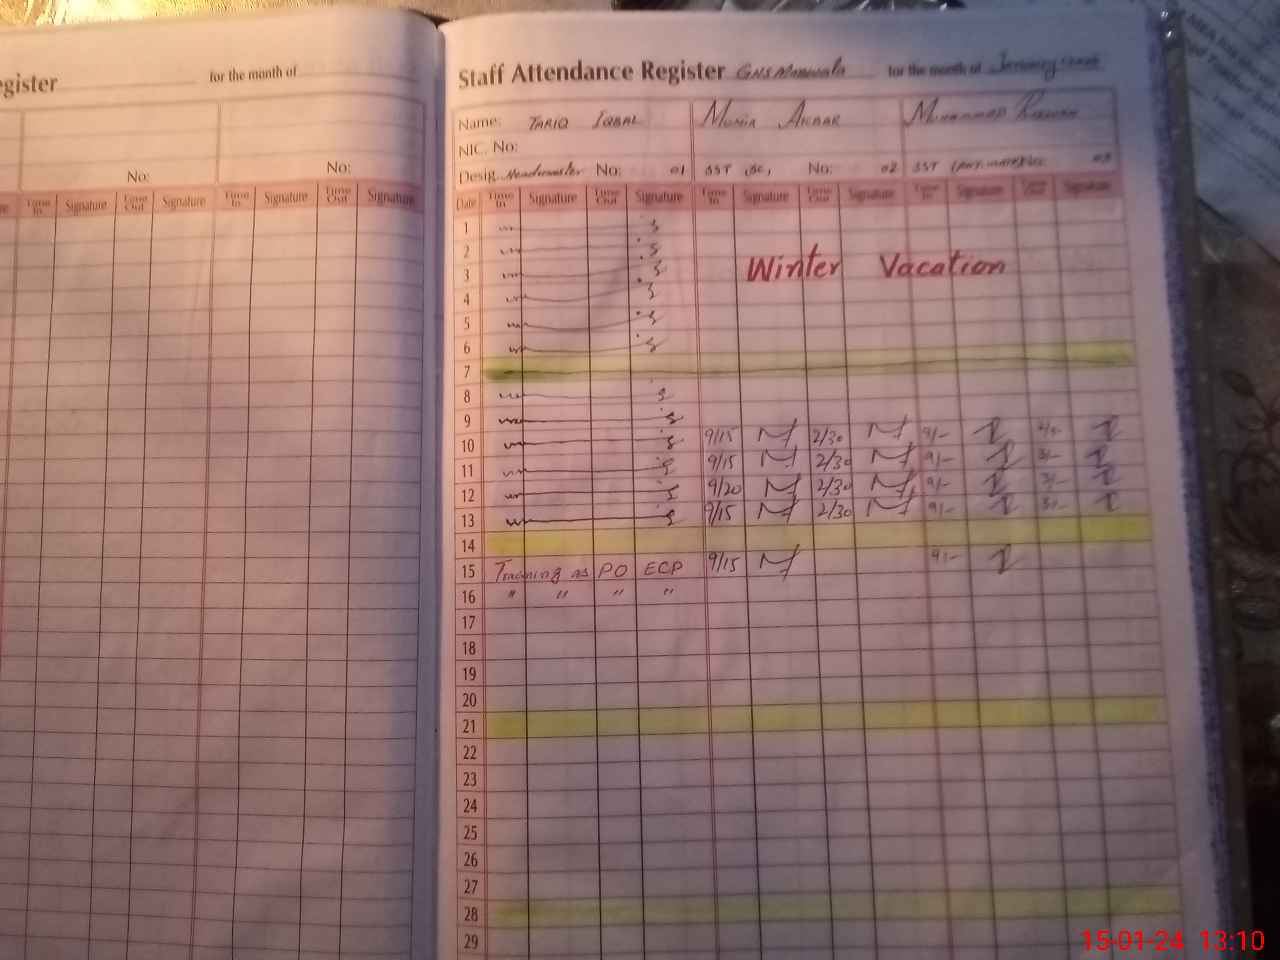 egister for the month of
No: No:
Time In Signature Time Out Signature Time In Signature Time Out Signature
Staff Attendance Register GHS for the month of January
Name: TARIQ IQBAL Munir Akbar Muhammad
NIC. No:
Desig. Headmaster No: 01 SST (SC) No: 02 SST 03
Date Time In Signature Time Out Signature Time In Signature Time Out Signature Time In Signature Signature
1
2
Winter Vacation
3
4
5
6
7
8
9
10 9/15 2/30 9/-
11 9/15 2/30 9/- 3/-
12 9/20 2/30 9/- 3/-
13 9/15 2/30 9/- 3/-
14
15 Training as PO ECP 9/15 9/-
16 " " " "
17
18
19
20
21
22
23
24
25
26
27
28
29
15-01-24 13:10